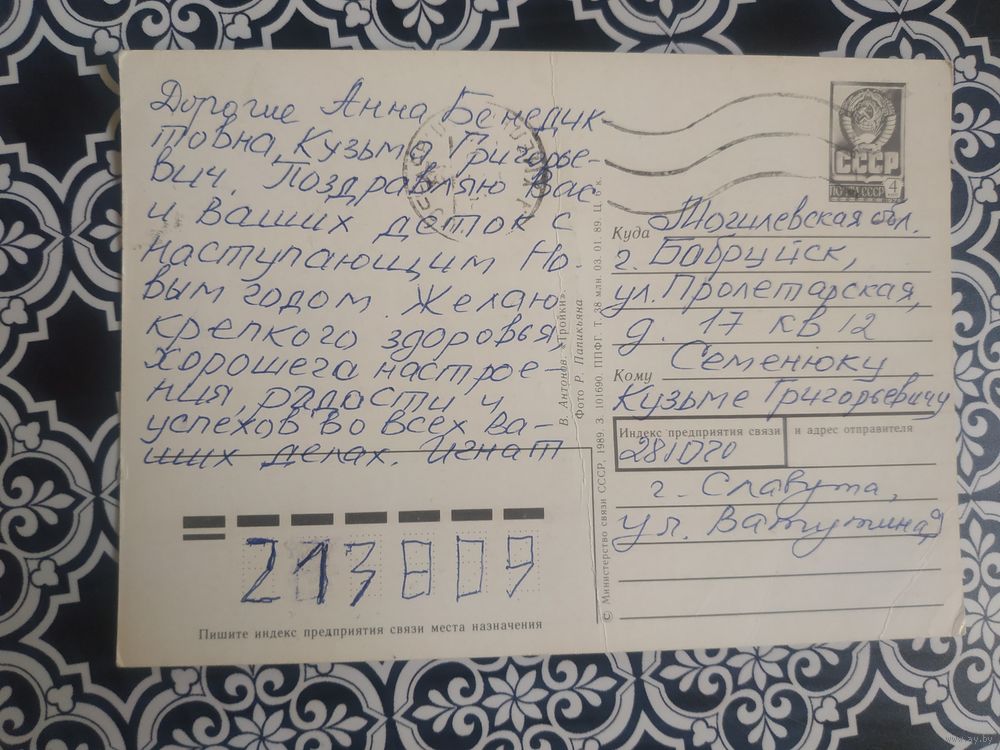 Дорогие Анна Бенедик-
товна, Кузьма Григорье-
вич. Поздравляю Вас
и ваших деток с
наступающим Но
вым годом. Желаю
крепкого здоровья,
хорошега настрое-
ния, радости и
успехов во всех ва-
ших делах. Игнат
213809
Пишите индекс предприятия связи места назначения
В. Антонов. «Тройки».
Фото Р. Папикьяна
© Министерство связи СССР, 1989. З. 101690. ППФГ. Т. 38 млн. 03. 01. 89. Ц. 5 к.
СССР
ПОЧТА СССР 4
Куда Могилевская обл.
г. Бабруйск,
ул. Пролетарская,
д. 17 кв 12
Семенюку
Кому
Кузьме Григорьевичу
Индекс предприятия связи и адрес отправителя
281070
г. Славута,
ул. Ватутина